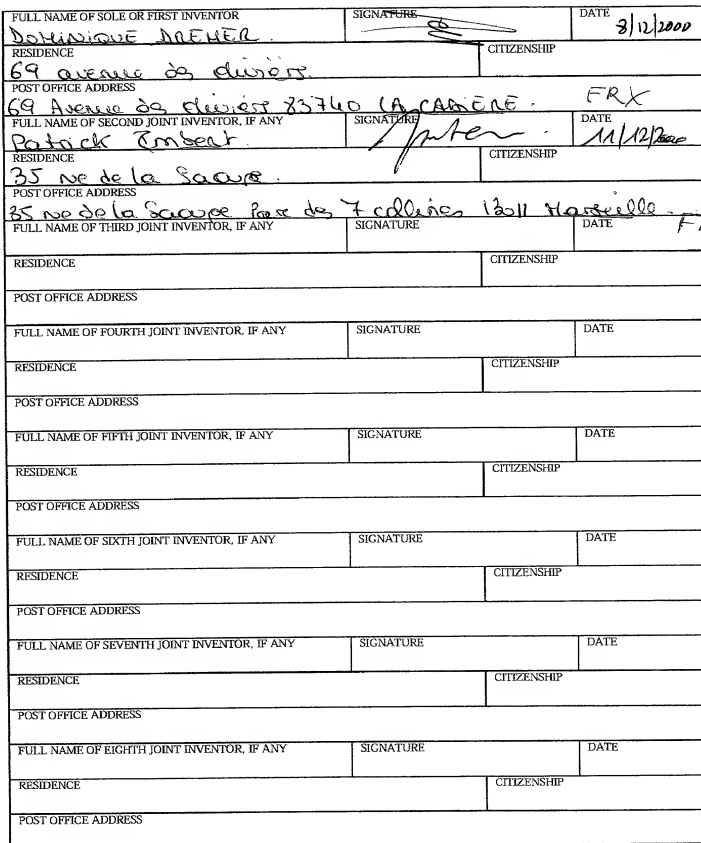 FULL NAME OF SOLE OR FIRST INVENTOR SIGNATURE DATE
DOMINIQUE DREHER. 8/12/2000
RESIDENCE CITIZENSHIP
69 avenue des
POST OFFICE ADDRESS
69 Avenue des 83740 LA CADIERE. FRX
FULL NAME OF SECOND JOINT INVENTOR, IF ANY SIGNATURE DATE
Patrick Imbert. 11/12/2000
RESIDENCE CITIZENSHIP
35 rue de la
POST OFFICE ADDRESS
35 rue de la Parc des 7 collines 13011 Marseille.
FULL NAME OF THIRD JOINT INVENTOR, IF ANY SIGNATURE DATE
RESIDENCE CITIZENSHIP
POST OFFICE ADDRESS
FULL NAME OF FOURTH JOINT INVENTOR, IF ANY SIGNATURE DATE
RESIDENCE CITIZENSHIP
POST OFFICE ADDRESS
FULL NAME OF FIFTH JOINT INVENTOR, IF ANY SIGNATURE DATE
RESIDENCE CITIZENSHIP
POST OFFICE ADDRESS
FULL NAME OF SIXTH JOINT INVENTOR, IF ANY SIGNATURE DATE
RESIDENCE CITIZENSHIP
POST OFFICE ADDRESS
FULL NAME OF SEVENTH JOINT INVENTOR, IF ANY SIGNATURE DATE
RESIDENCE CITIZENSHIP
POST OFFICE ADDRESS
FULL NAME OF EIGHTH JOINT INVENTOR, IF ANY SIGNATURE DATE
RESIDENCE CITIZENSHIP
POST OFFICE ADDRESS